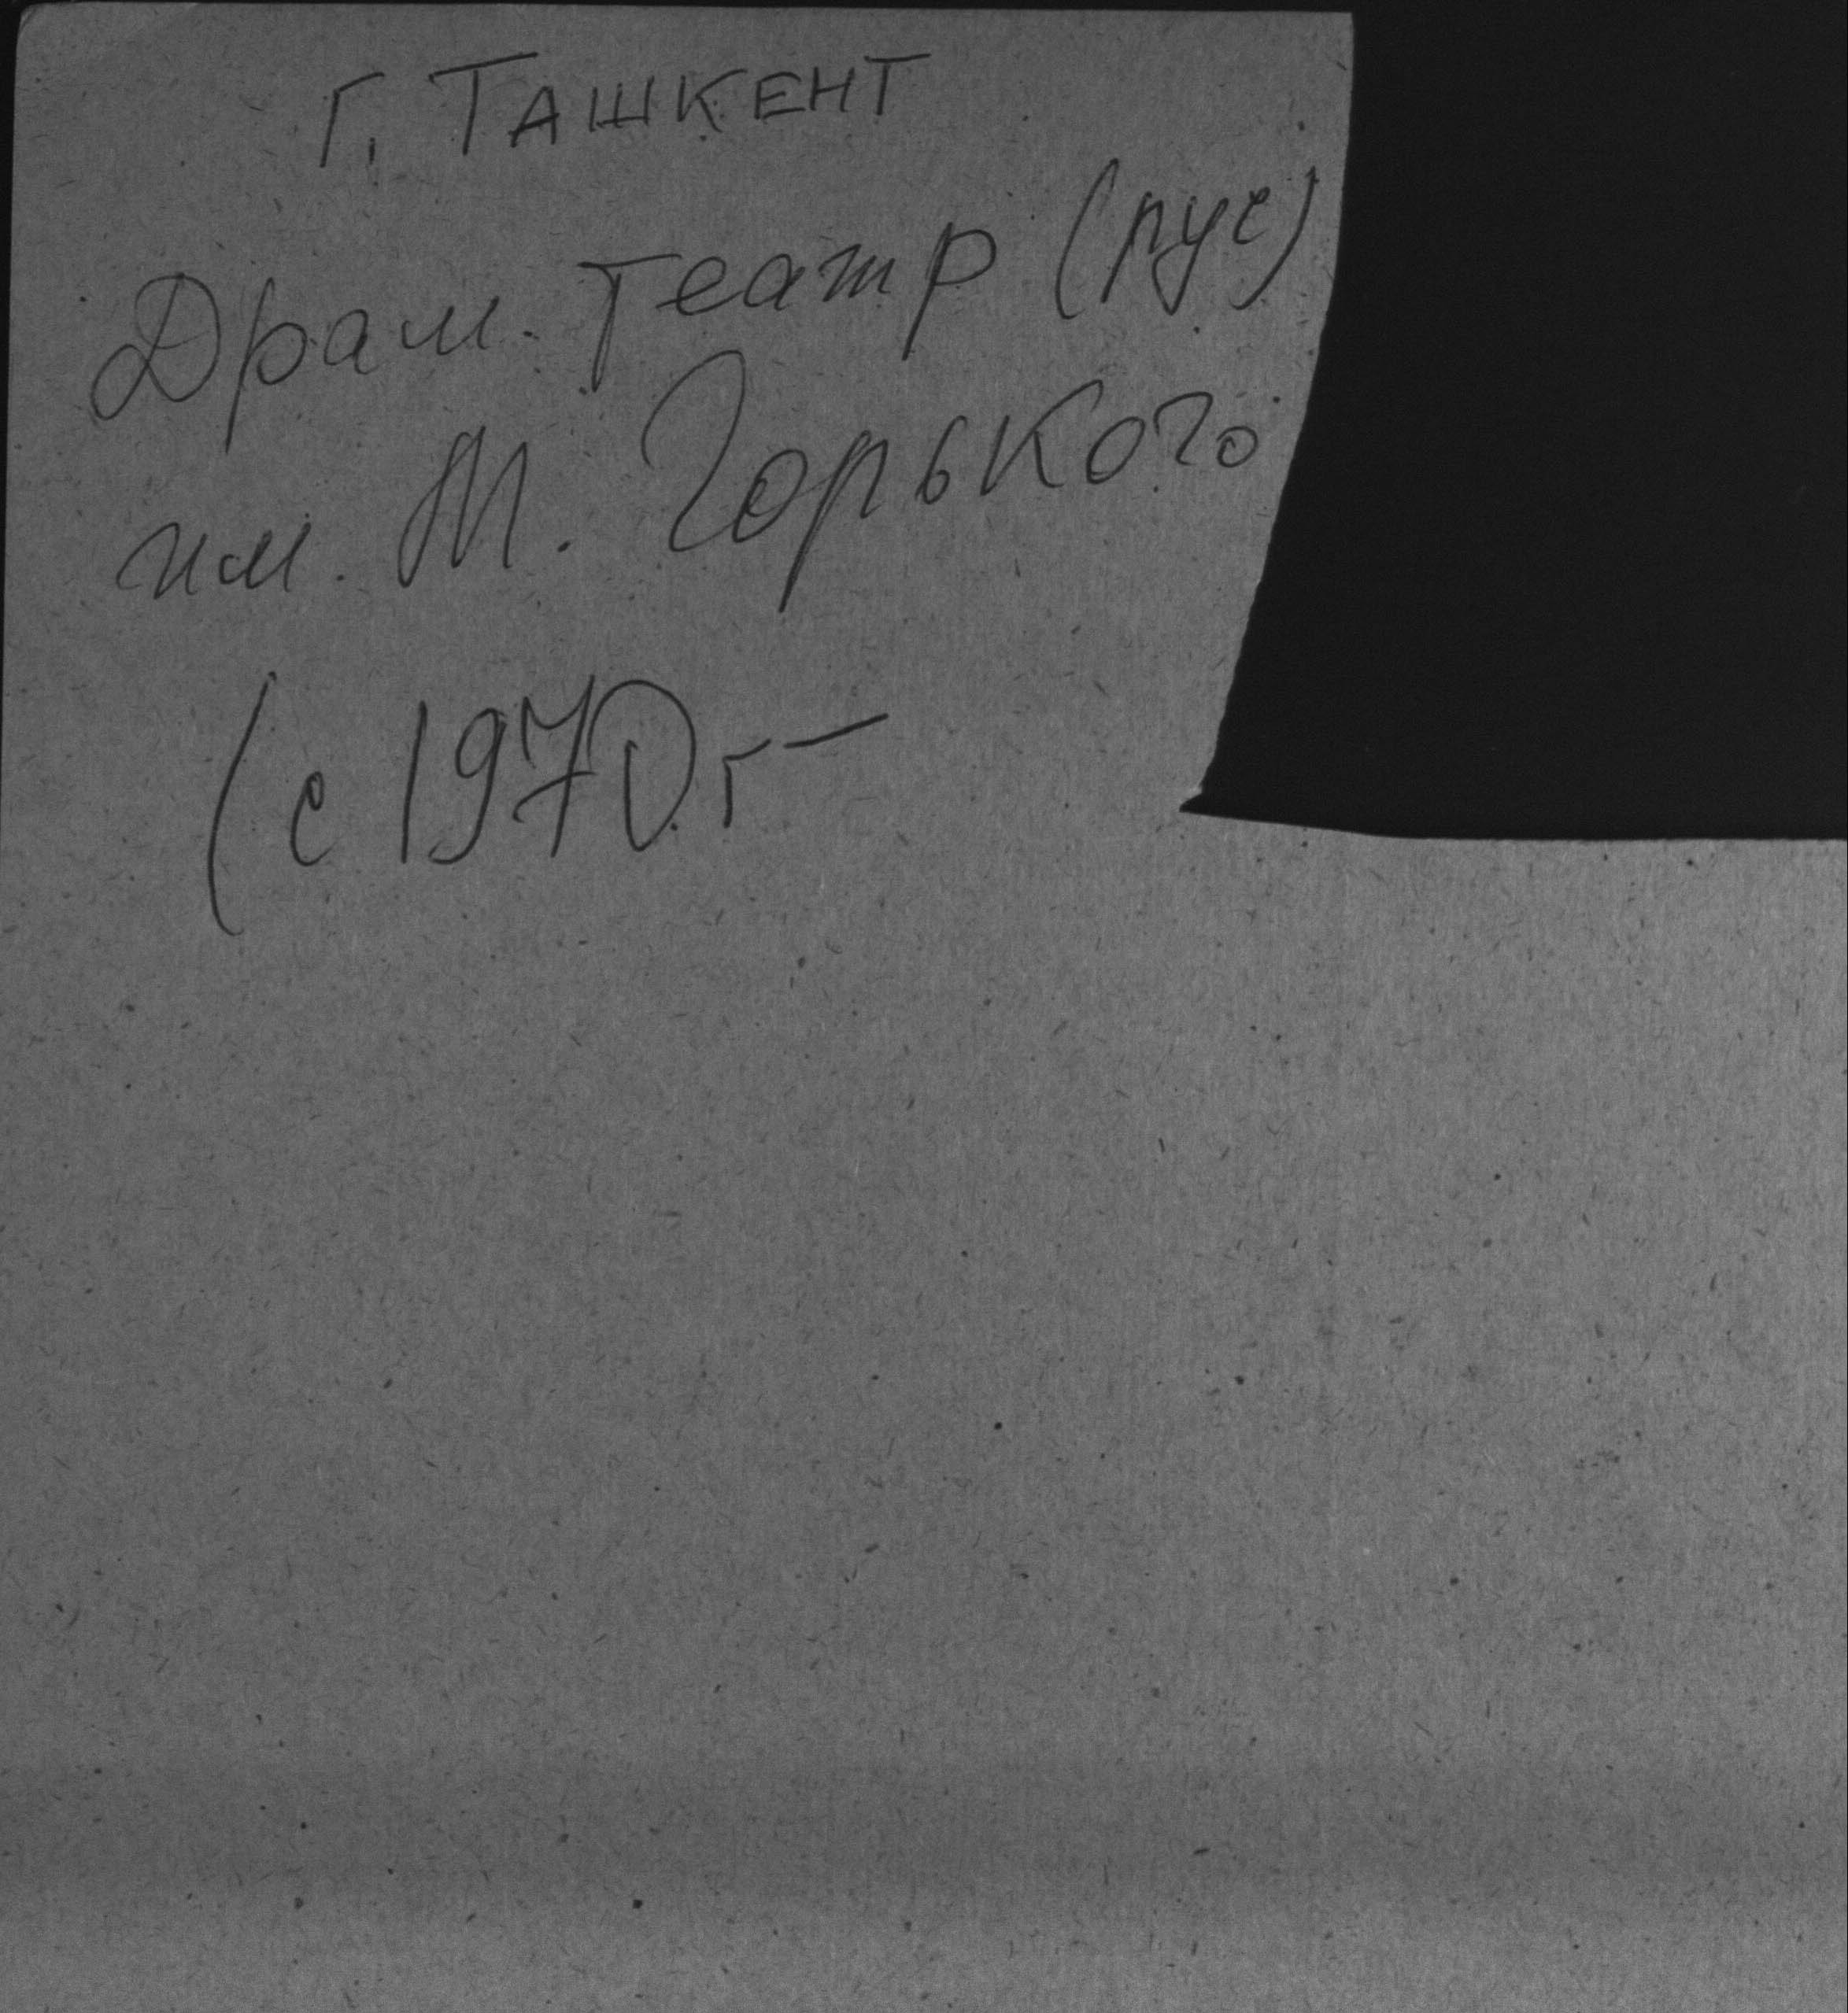 г. Ташкент
Драм. театр (рус)
им. М. Горького
(с 1970 г —